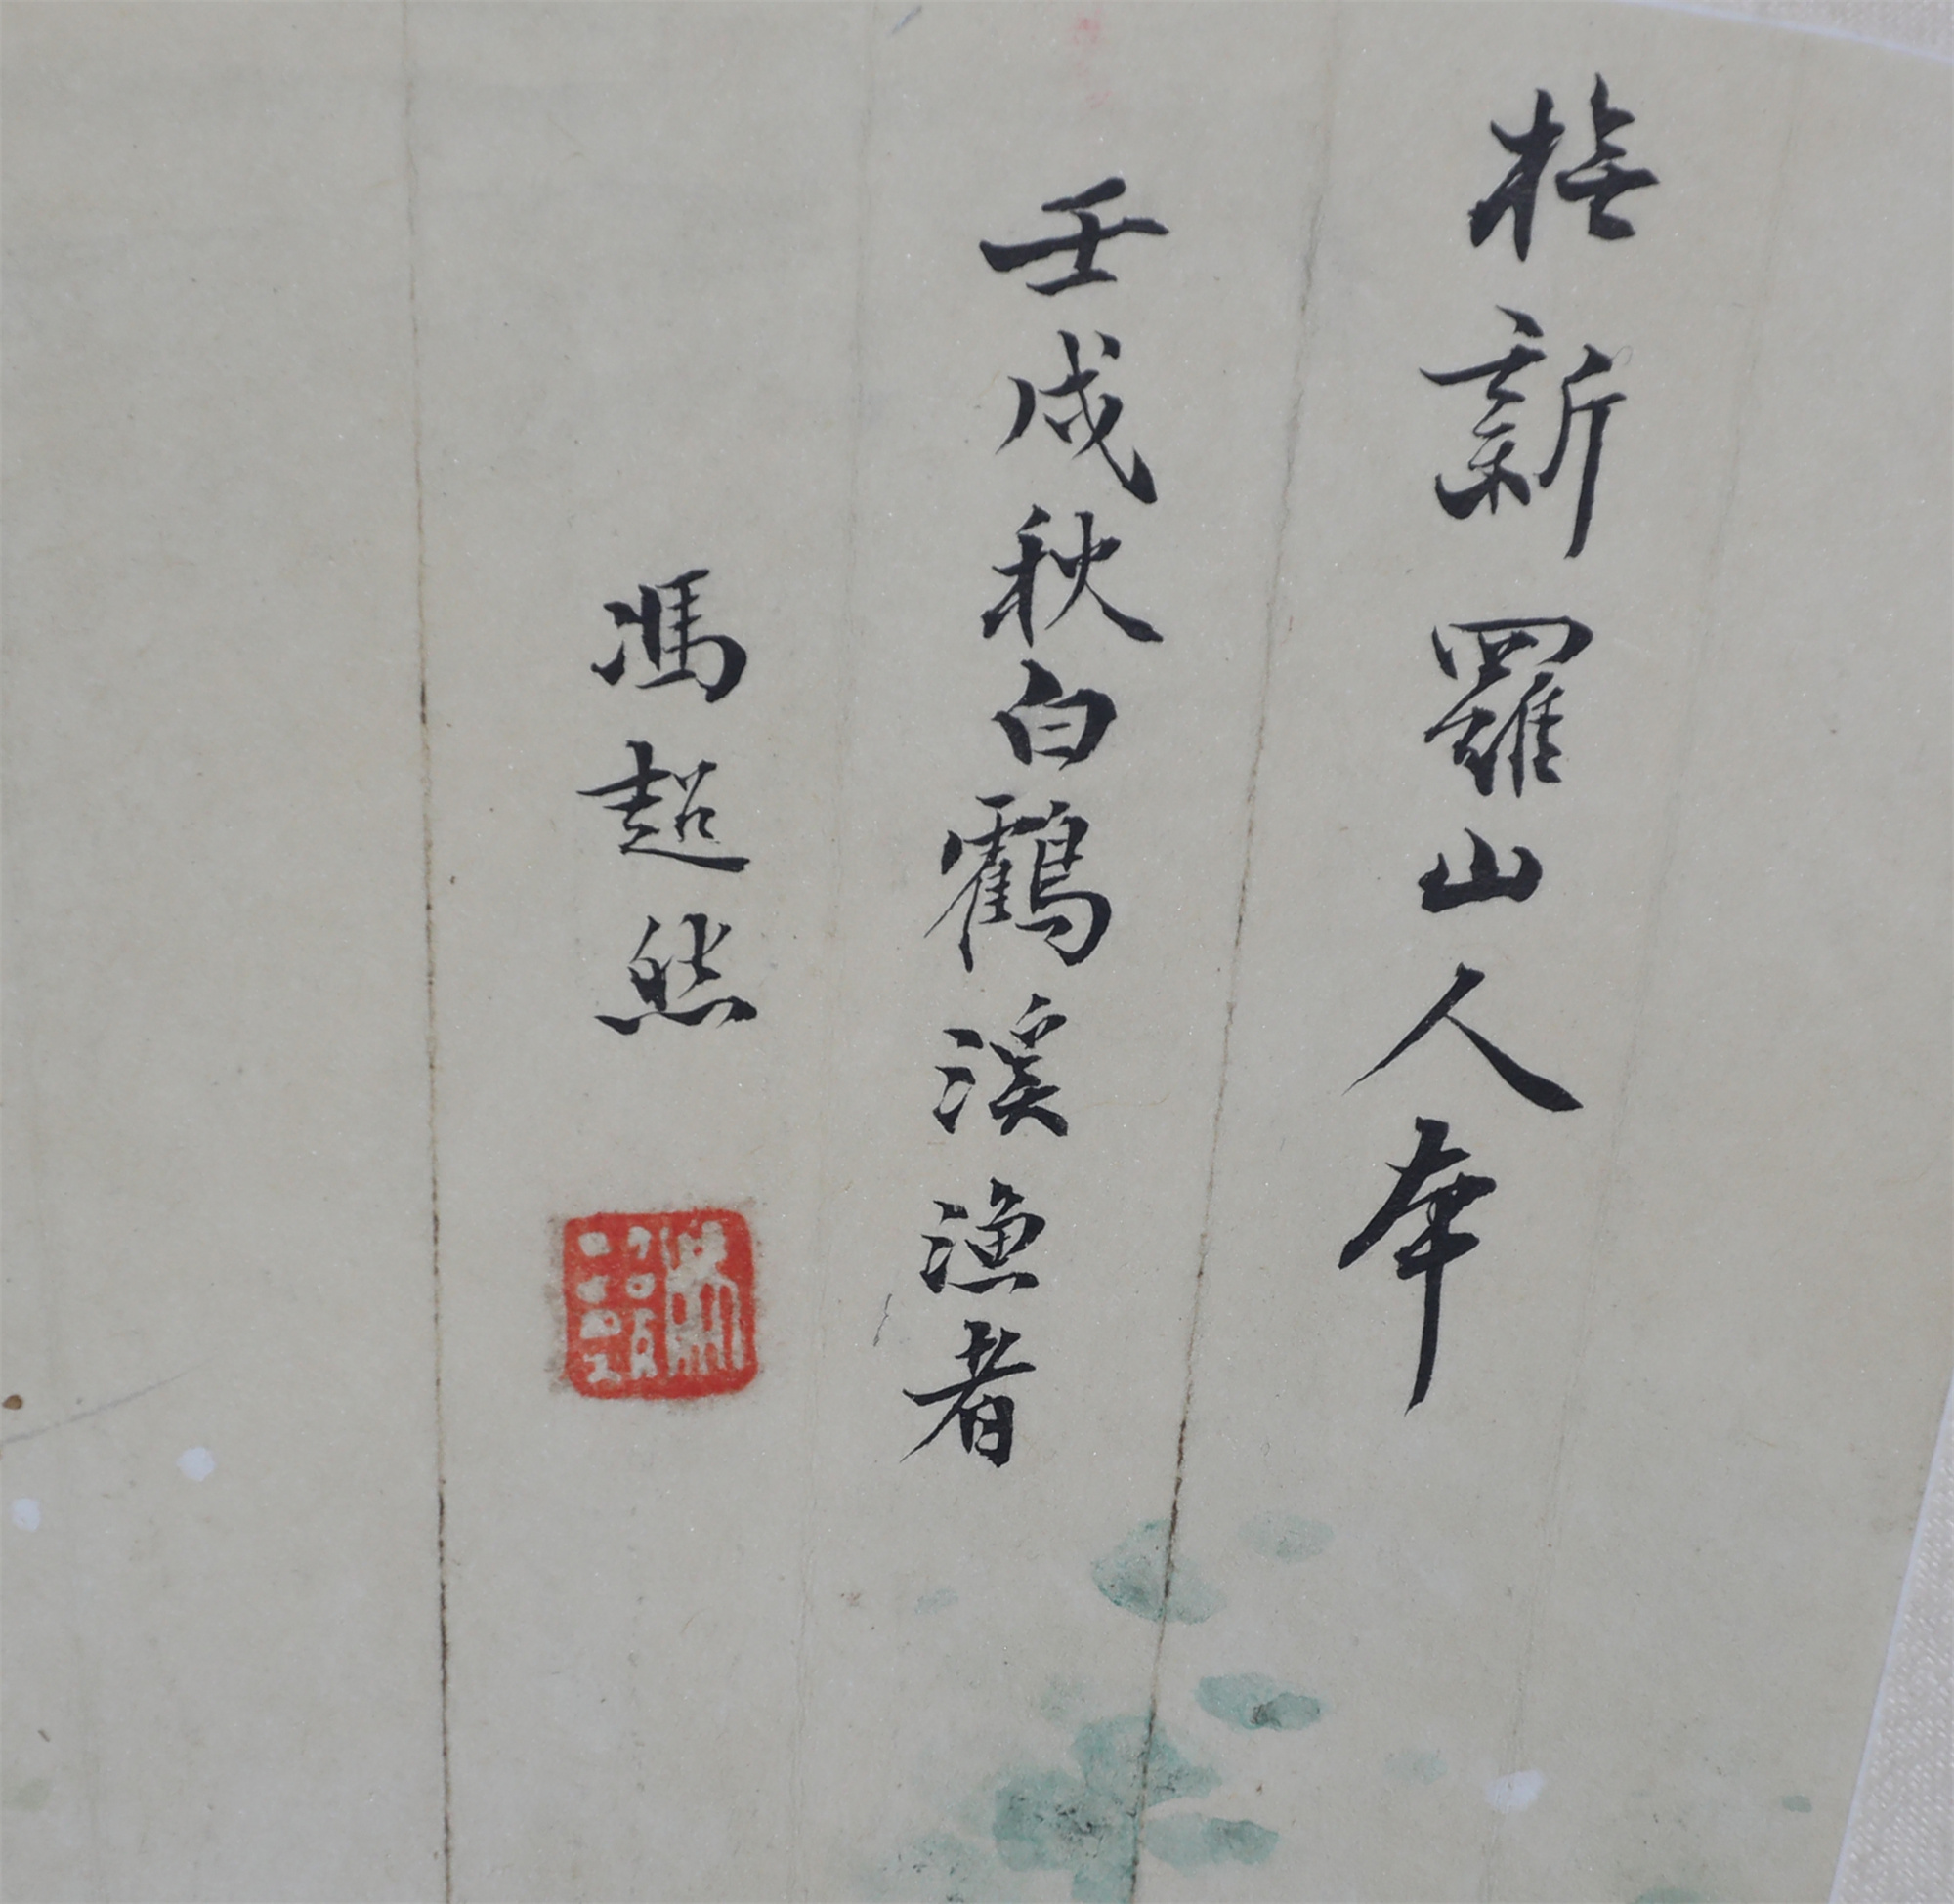 橅新羅山人本
壬戌秋白鶴溪漁者
馮超然